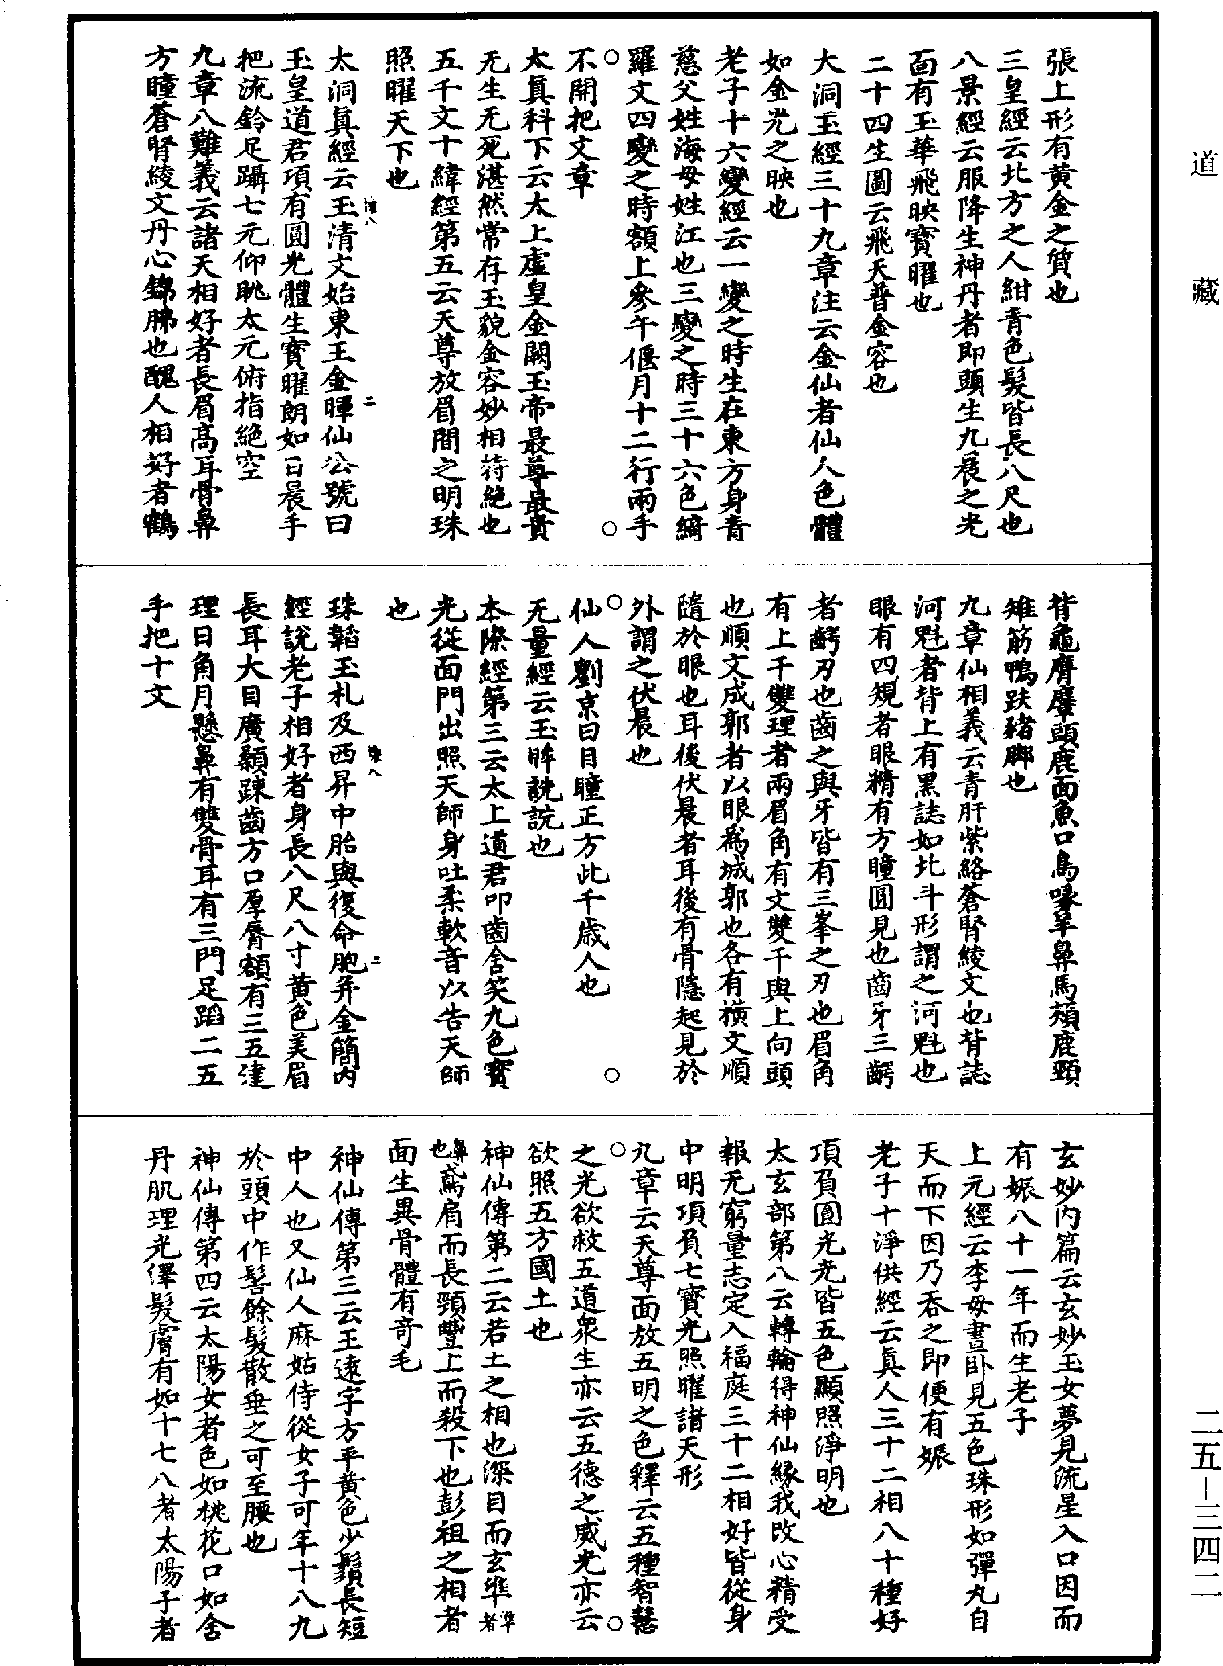 道藏
張上形有黃金之質也
三皇經云北方之人紺青色髮皆長八尺也
八景經云服降生神丹者即頭生九晨之光
面有玉華飛映寶曜也
二十四生圖云飛天普金容也
大洞玉經三十九章注云金仙者仙人色體
如金光之映也
老子十六變經云一變之時生在東方身青
慈父姓海母姓江也三變之時三十六色綺
羅文四變之時額上參午偃月十二行兩手
不開把文章
太真科下云太上虛皇金闕玉帝最尊最貴
无生无死湛然常存玉貌金容妙相苻絶也
五千文十緯經第五云天尊放眉間之明珠
照曜天下也
太洞真經云玉清文始東王金暉仙公號曰
玉皇道君項有圓光體生寶曜朗如日晨手
把流鈴足躡七元仰眺太元俯指絶空
九章八難義云諸天相好者長眉高耳骨鼻
方瞳蒼腎綾文丹心錦肺也醜人相好者鶴
背龜膺麞頭鹿面魚口鳥喙羊鼻馬頰鹿頸
雉筋鴨趺豬腳也
九章仙相義云青肝紫絡蒼腎綾文也背誌
河魁者背上有黑誌如北斗形謂之河魁也
眼有四規者眼精有方瞳圓見也齒牙三齶
者齶刃也齒之與牙皆有三峯之刃也眉角
有上千雙理者兩眉角有文雙千與上向頭
也順文成郭者以眼為城郭也各有橫文順
隨於眼也耳後伏晨者耳後有骨隱起見於
外謂之伏晨也
仙人劉京曰目瞳正方此千歲人也
无量經云玉眸說說也
本際經第三云太上道君叩齒含笑九色寶
光從面門出照天師身吐柔軟音以告天師
也
珠韜玉札及西昇中胎與復命胞并金簡內
經說老子相好者身長八尺八寸黃色美眉
長耳大目廣顙踈齒方口厚脣額有三五達
理日角月懸鼻有雙骨耳有三門足蹈二五
手把十文
玄妙內篇云玄妙玉女夢見流星入口因而
有娠八十一年而生老子
上元經云李母晝卧見五色珠形如彈丸自
天而下因乃吞之即便有娠
老子十淨供經云真人三十二相八十種好
項負圓光光皆五色顯照淨明也
太玄部第八云轉輪得神仙緣我改心精受
報无窮量志定入福庭三十二相好皆從身
中明項負七寶光照曜諸天形
九章云天尊面放五明之色釋云五種智慧
之光欲救五道眾生亦云五德之威光亦云
欲照五方國土也
神仙傳第二云若士之相也深目而玄準準者
鼻也鳶肩而長頸豐上而殺下也彭祖之相者
面生異骨體有奇毛
神仙傳第三云王遠字方平黃色少鬚長短
中人也又仙人麻姑侍從女子可年十八九
於頭中作髻餘髮散垂之可至腰也
神仙傳第四云太陽女者色如桃花口如含
丹肌理光繹髮膚有如十七八者太陽子者
二五－三四二